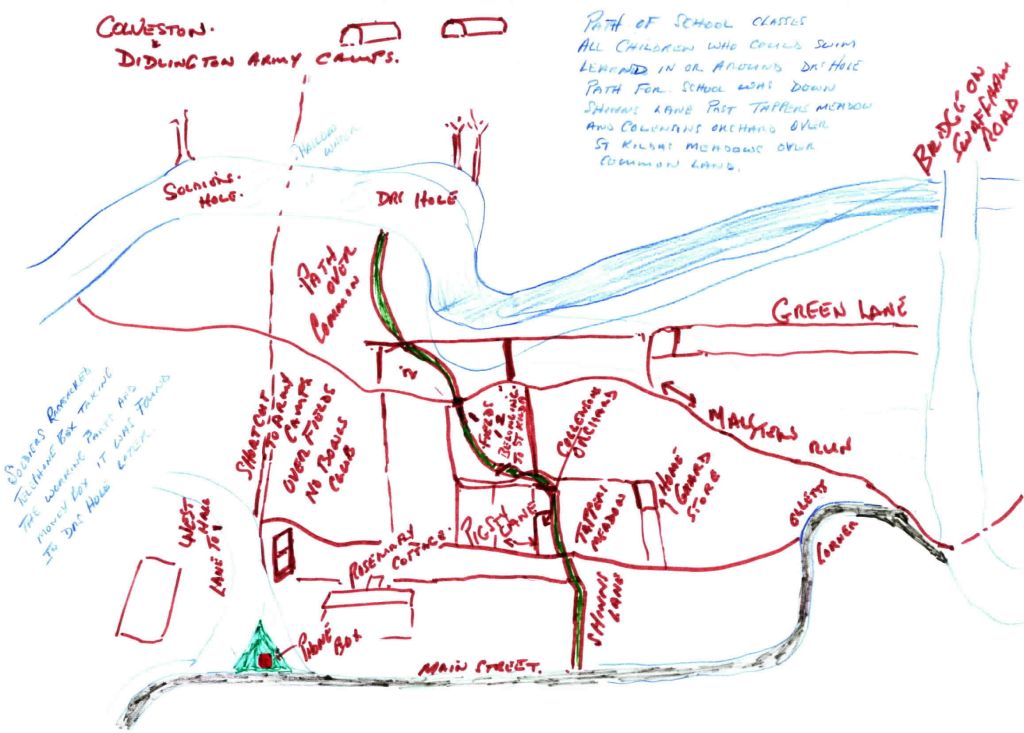 COLVESTON.
&
DIDLINGTON ARMY CAMPS.
PATH OF SCHOOL CLASSES
ALL CHILDREN WHO COULD SWIM
LEARNED IN OR AROUND DRS HOLE
PATH FOR SCHOOL WAS DOWN
SHINNS LANE PAST TAPPERS MEADOW
AND COLENSINS ORCHARD OVER
ST KILDAS MEADOWS OVER
COMMON LAND.
BRIDGE ON
SWAFFHAM
ROAD
SHALLOW
WATER
SOLDIERS.
HOLE.
DRS HOLE
PATH
OVER
COMMON
GREEN LANE
SOLDIERS RANSACKED
TELEPHONE BOX TAKING
THE WEARING PARTS AND
MONEY BOX IT WAS FOUND
IN DRS HOLE LATER.
SHORTCUT
TO ARMY
CAMPS
OVER FIELDS
NO BORNUS
CLUB
FIELDS
1 2
BELONGING
TO ST KILDA
COLLENSINS
ORCHARD
MALSTERS RUN
HOME
GUARD
STORE
TAPPERS
MEADOW
PIGSTY LANE
OLLETTS
CORNER
WEST
HALL
LANE TO
ROSEMARY
COTTAGE.
SHINNS
LANE
PHONE
BOX
MAIN STREET.